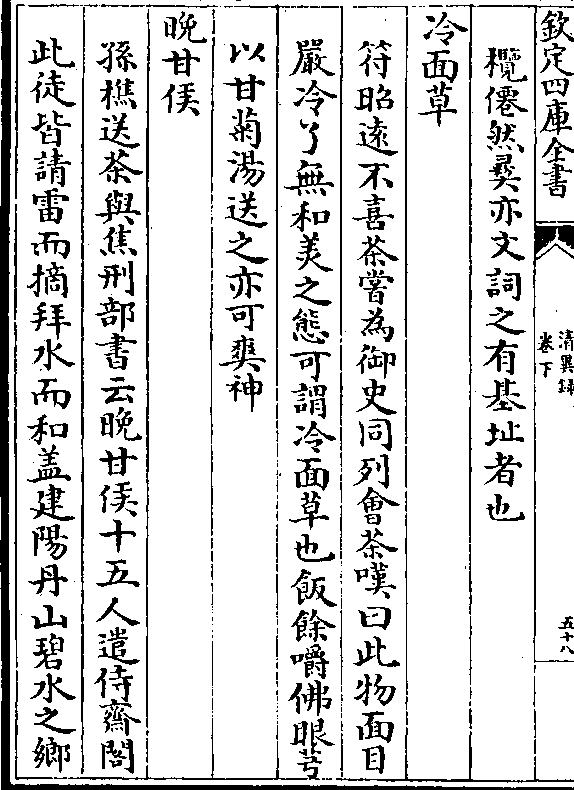 欽定四庫全書
清異録
卷下
五十八
欖僊然㢤亦文詞之有基址者也
冷面草
符昭遠不喜茶嘗為御史同列會茶嘆曰此物面目
嚴冷了無和美之態可謂冷面草也飯餘嚼佛眼芎
以甘菊湯送之亦可爽神
晚甘侯
孫樵送茶與焦刑部書云晚甘侯十五人遣侍齋閣
此徒皆請雷而摘拜水而和盖建陽丹山碧水之鄉